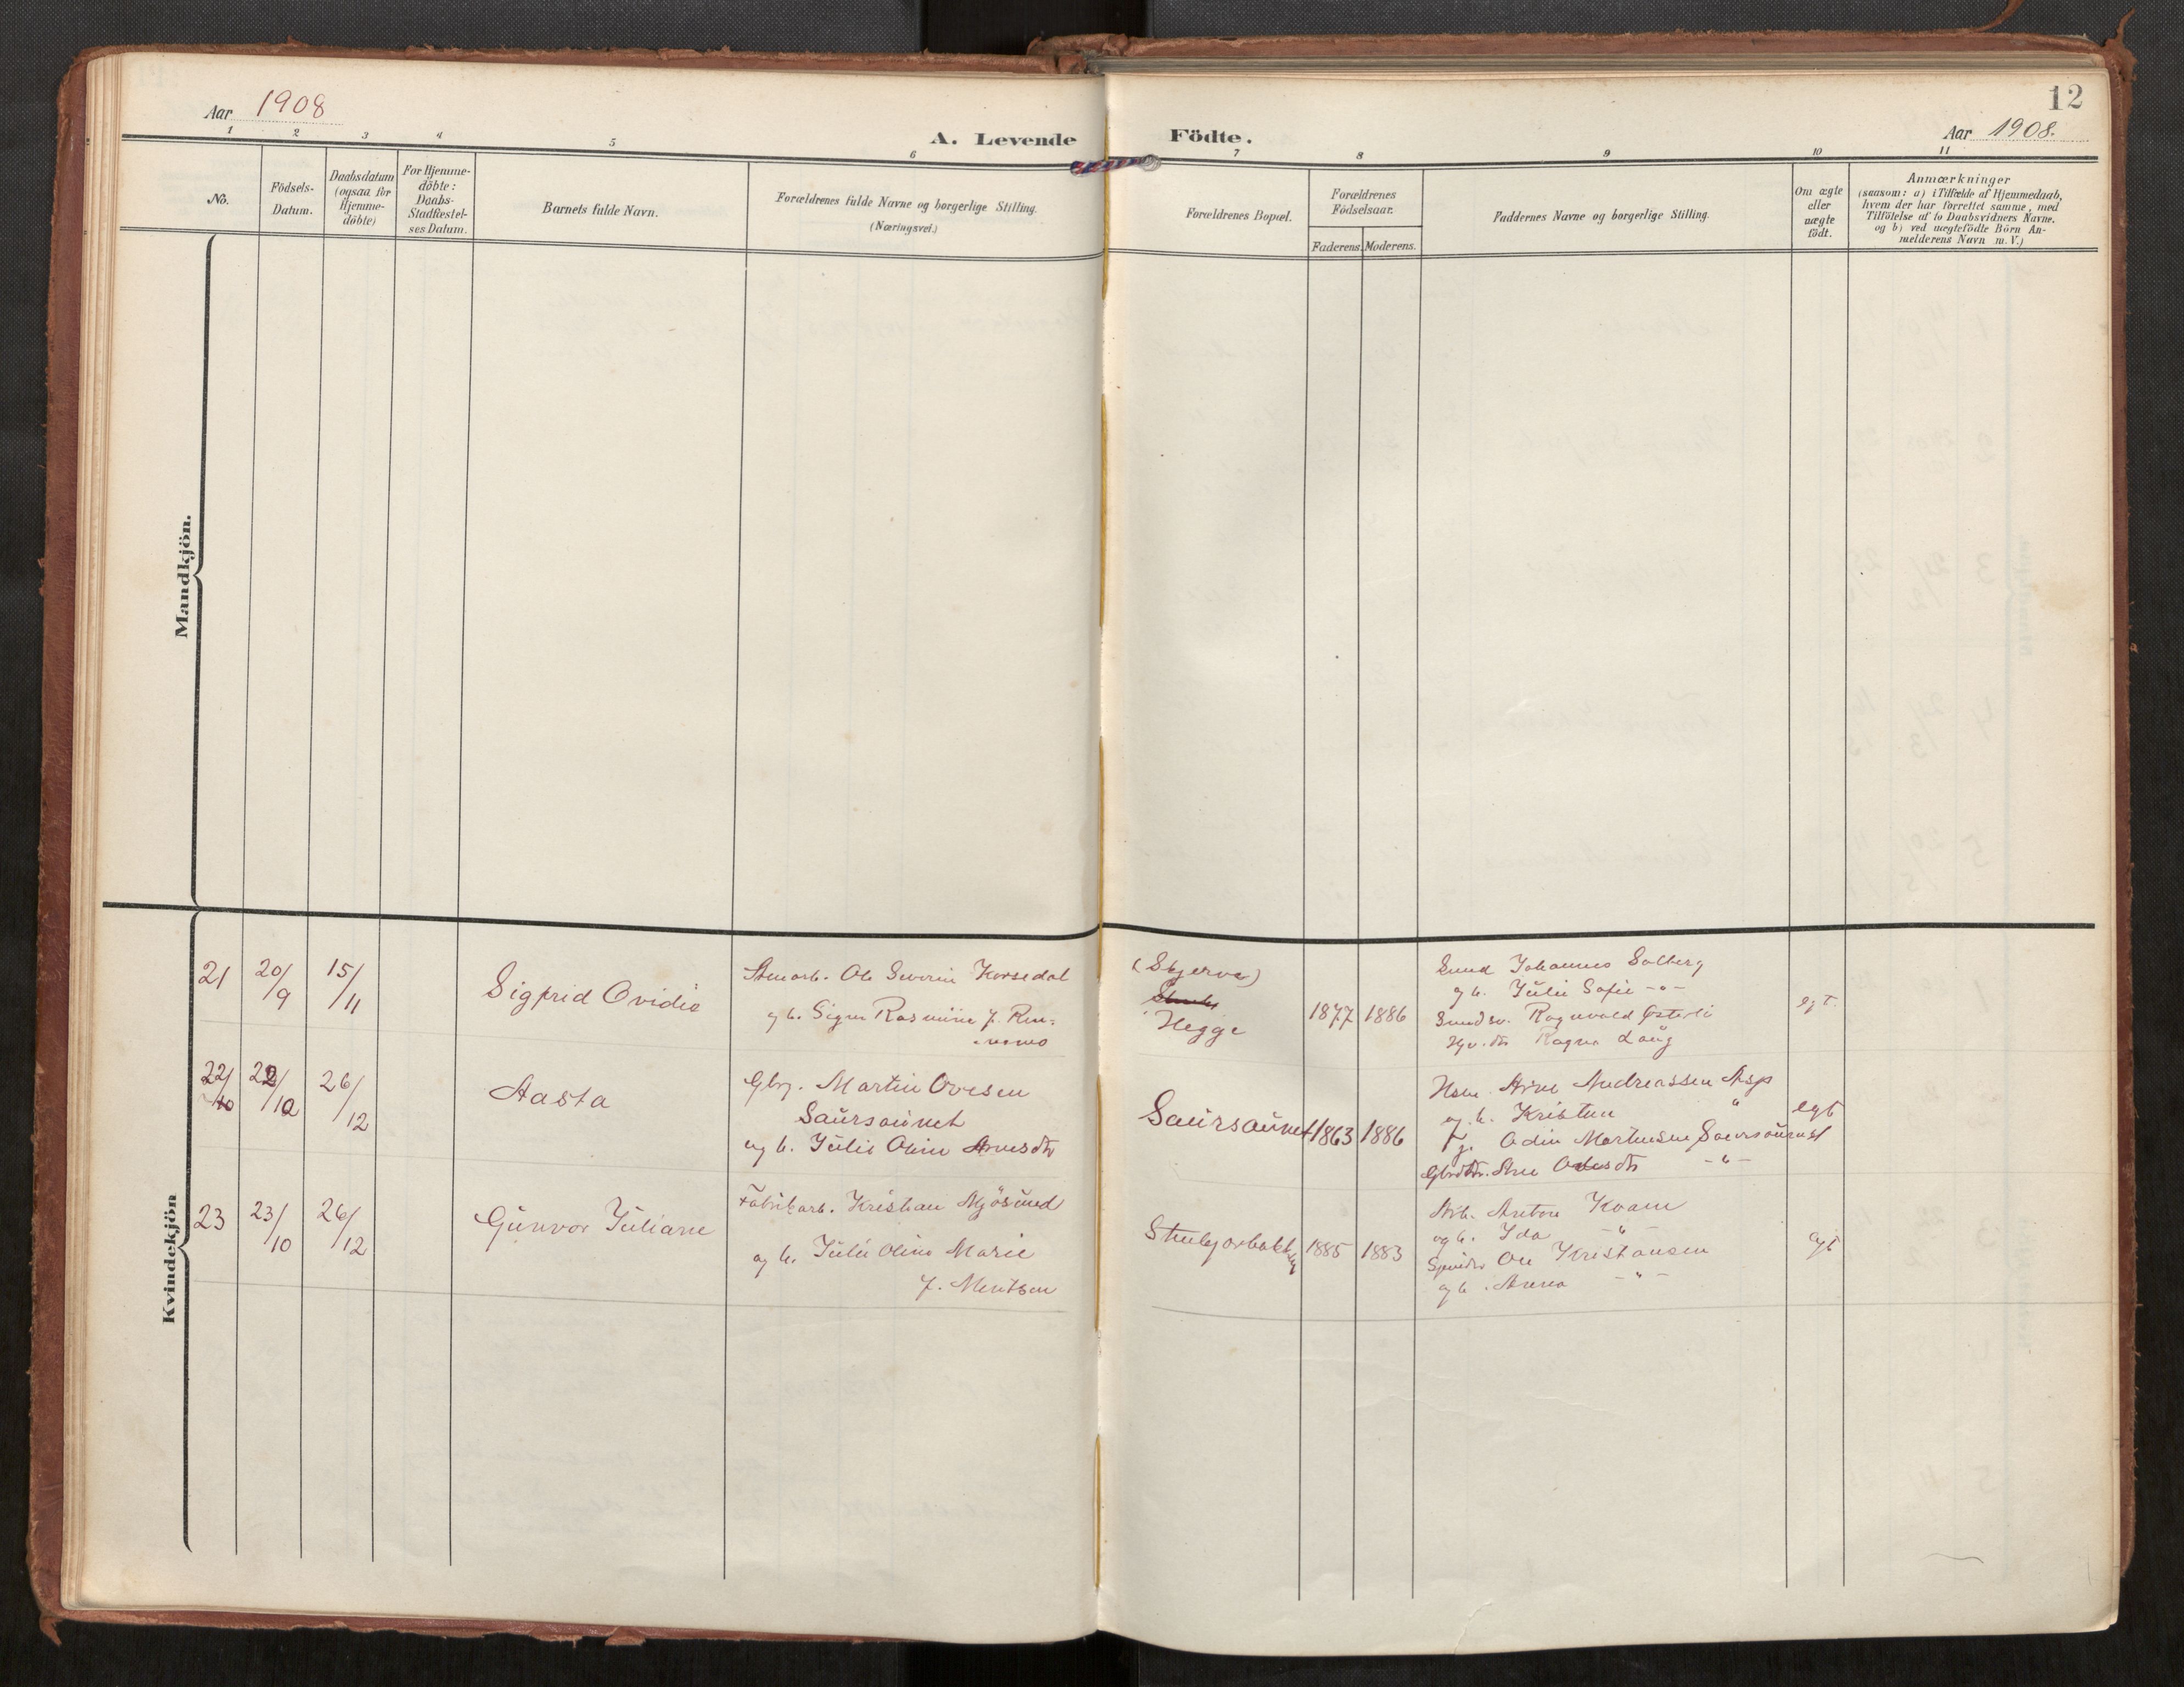 Aar 1908
A. Levende Födte.
12
Aar 1908.
1 2 3 4 5 6 7 8 9 10 11
No.
Födsels-
Datum.
Daabsdatum
(ogsaa for
Hjemme-
döbte)
For Hjemme-
döbte:
Daabs-
Stadfæstel-
ses Datum.
Barnets fulde Navn.
Forældrenes fulde Navne og borgerlige Stilling.
(Næringsvei.)
Forældrenes Bopæl.
Forældrenes
Födselsaar.
Faderens. Moderens.
Faddernes Navne og borgerlige Stilling.
Om ægte
eller
uægte
födt.
Anmærkninger
(saasom: a) i Tilfælde af Hjemmedaab,
hvem der har forrettet samme, med
Tilföielse af to Daabsvidners Navne.
og b) ved uægtefödte Börn An-
melderens Navn m. V.)
Mandkjön.
Kvindekjön
21
20/9
15/11
Sigfrid Ovidie
Stenarb. Ole Severin Korsedal
og h. Signe Rasmine f.
(Skjerve)
Hegge
1877
1886
Johannes Solberg
og h. Julie Sofie -"-
Ragnvald Österli
Ragna
egt.
22
22/10
26/12
Aasta
Gbr. Martin Ovesen
Saursaunet
og h. Julie Oline Arnesdtr
Saursaunet
1863
1886
Arne Andreassen Asp
og h. Kristine "
Odin Martinsen Saursaunet
-"-
egt
23
23/10
26/12
Gunvor Juliane
Fabrikarb. Kristian Mjösund
og h. Julie Oline Marie
f. Mentsen
1885
1883
Arb. Anton Kvam
og h. Ida -"-
Ole Kristiansen
og h. Anna -"-
egt